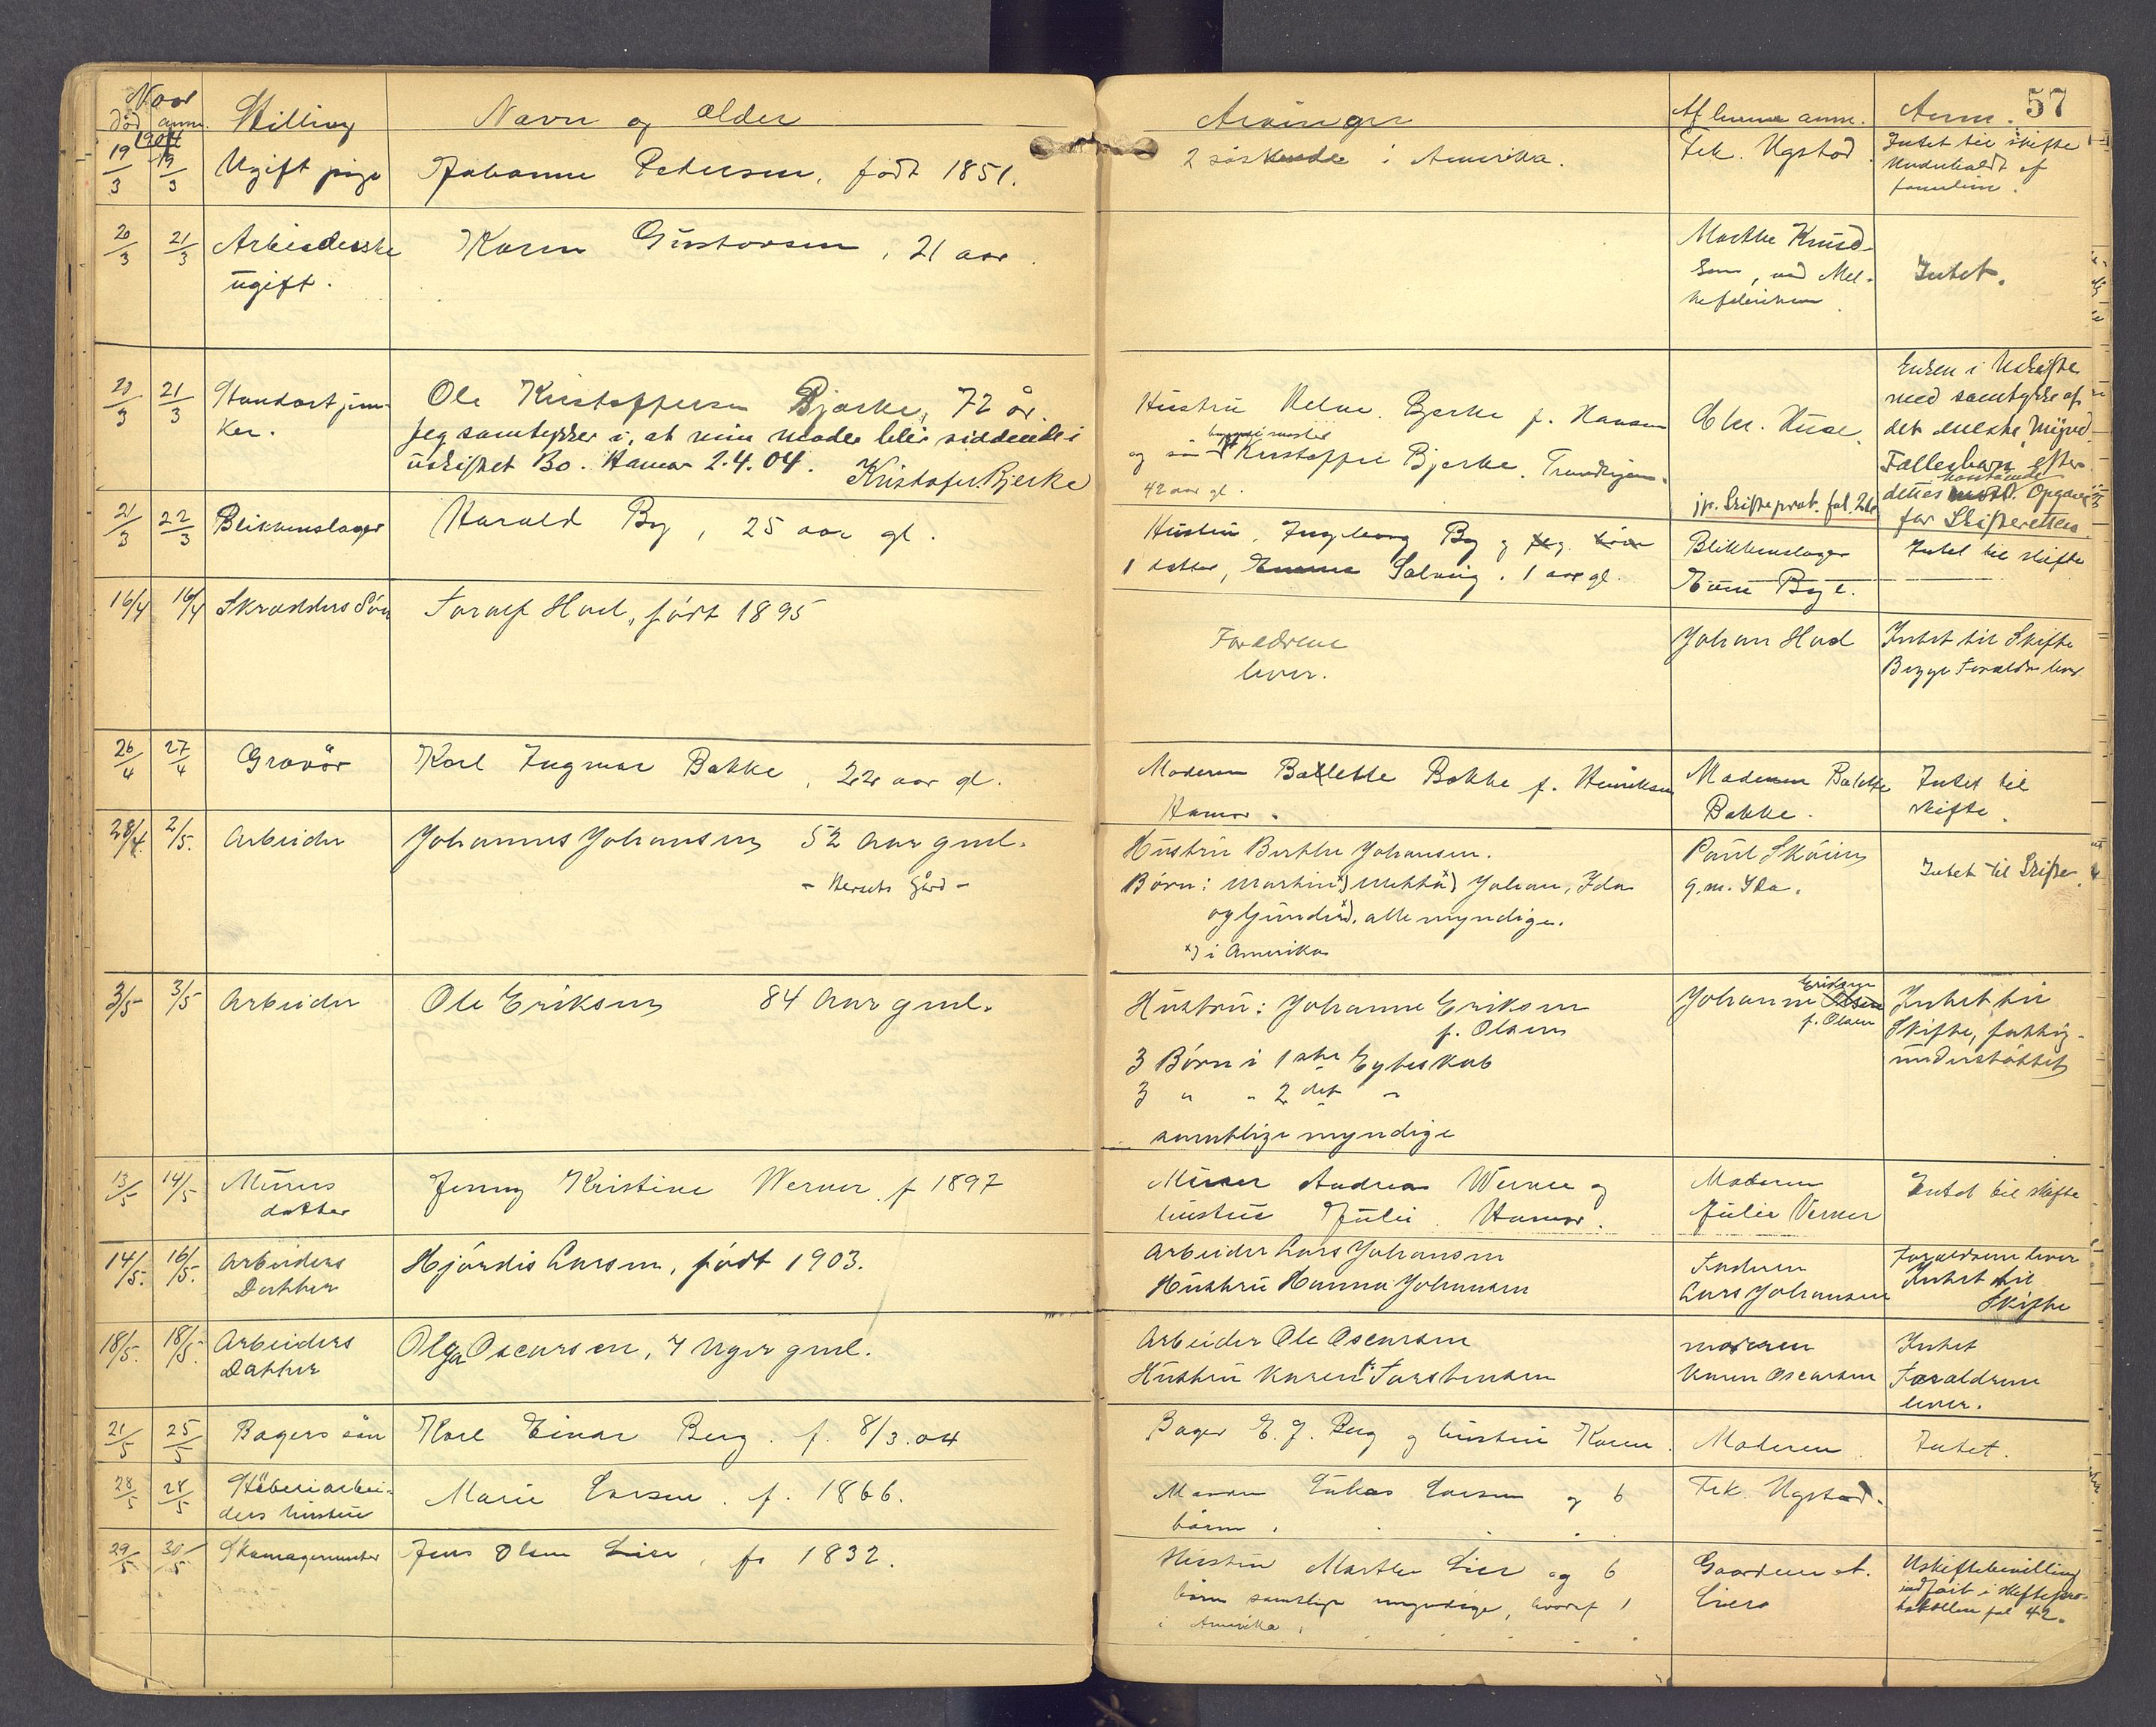 Naar
død anm. Stilling Navn og alder Arvinger Af hvem anm. Anm. 57
1904
19/3 19/3 Ugift pige Johanne Pedersen, født 1851. 2 søskende i Amerika. Frk. Ugstad. Intet til skifte
Underholdt af
familien.
20/3 21/3 Arbeiderske Karen Gustavsen, 21 aar. Marthe Knud-
ugift. sen, ved Mel-
kefabriken. Intet.
20/3 21/3 Standartjun-
ker. Ole Kristoffersen Bjerke, 72 år.
Jeg samtykker i, at min moder blir siddende i
uskiftet Bo. Hamar 2.4.04. Kristofer Bjerke
Hustru Helene Bjerke f. Hansen
og søn Kristoffer Bjerke. Trondhjem.
42 aar gl.
Chr. Huse.
jvr. Skifteprot. fol.
Enken i Uskifte
med samtykke af
det eneste mynd.
Fællesbarn efter
dettes Opgave
for Skifteretten.
21/3 22/3 Blikkenslager Harald By, 25 aar gl. Hustru, Ingeborg By og
1 datter, Solveig. 1 aar gl. Blikkenslager
By. Intet til skifte
16/4 16/4 Skrædders Søn Toralf Hoel, født 1895 Forældrene
lever. Johan Hoel Intet til Skifte
Begge Forældre lever
26/4 27/4 Gravør Karl Ingmar Bakke, 22 aar gl. Moderen Balette Bakke f. Henriksen
Hamar. Moderen Balette
Bakke. Intet til
skifte.
28/4. 2/5. Arbeider Johannes Johansen 52 Aar gml.
- Hersets Gård -
Hustru Berthe Johansen.
Børn: Martin x) Mathea x) Johan, Ida
og Gunder x), alle myndige.
x) i Amerika
Paul Skøien
g.m. Ida. Intet til Skifte.
3/5 3/5 Arbeider Ole Eriksen 84 Aar gml. Hustru: Johanne Eriksen
f. Olsen
3 Børn i 1ste Egteskab
3 " " 2det "
samtlige myndige
Johanne Olsen Eriksen
f. Olsen
Intet til
Skifte, fattig-
understøttet
13/5 14/5 Murers
datter Jenny Kristine Werner f 1897 Murer Andreas Werner og
hustru Julie. Hamar. Moderen
Julie Verner Intet til skifte
14/5. 16/5. Arbeiders
Datter Hjørdis Larsen, født 1903. Arbeider Lars Johansen
Hustru Hanna Johansen Faderen
Lars Johansen Forældrene lever
Intet til
Skifte
18/5. 18/5. Arbeiders
Datter Olga Oscarsen, 7 Uger gml. Arbeider Ole Oscarsen
Hustru Karen f. Torstensen moderen
Karen Oscarsen Intet
Forældrene
lever.
21/5 25/5 Bagers søn Karl Einar Berg. f. 8/3.04 Bager E. J. Berg og hustru Karen. Moderen. Intet.
28/5 28/5 Støberiarbei-
ders hustru Marie Larsen. f. 1866. Manden Lukas Larsen og 6
børn. Frk. Ugstad.
29/5 30/5 Skomagermester Jens Olsen Lier, f. 1832. Hustru Marthe Lier og 6
børn samtlige myndige, hvoraf 1
i Amerika.
Gaardeier A.
Liero
Uskiftebevilling
indført i skiftepro-
tokollen fol 42.